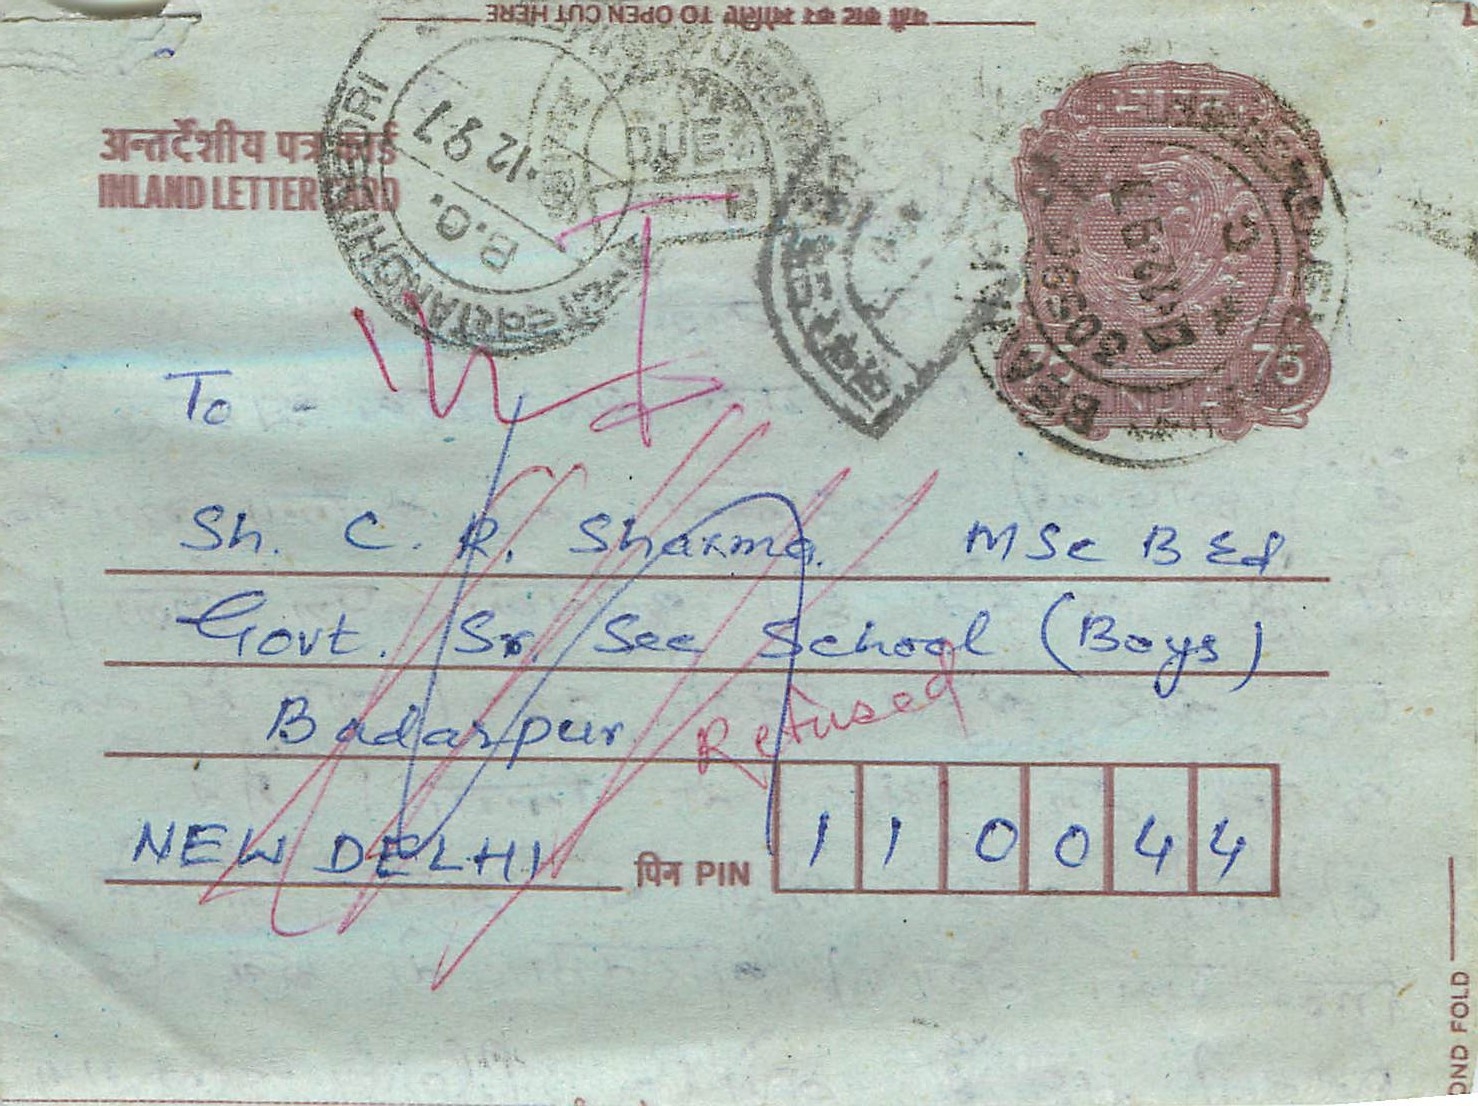 यहाँ काट कर खोलिए TO OPEN CUT HERE
अन्तर्देशीय पत्र कार्ड
INLAND LETTER CARD
B.O.
.12 97
DUE
भारत
75
INDIA
To -
Sh. C. R. Sharma. MSc B Ed
Govt. Sr. Sec School (Boys)
Badarpur
Refused
NEW DELHI
पिन PIN 110044
OND FOLD